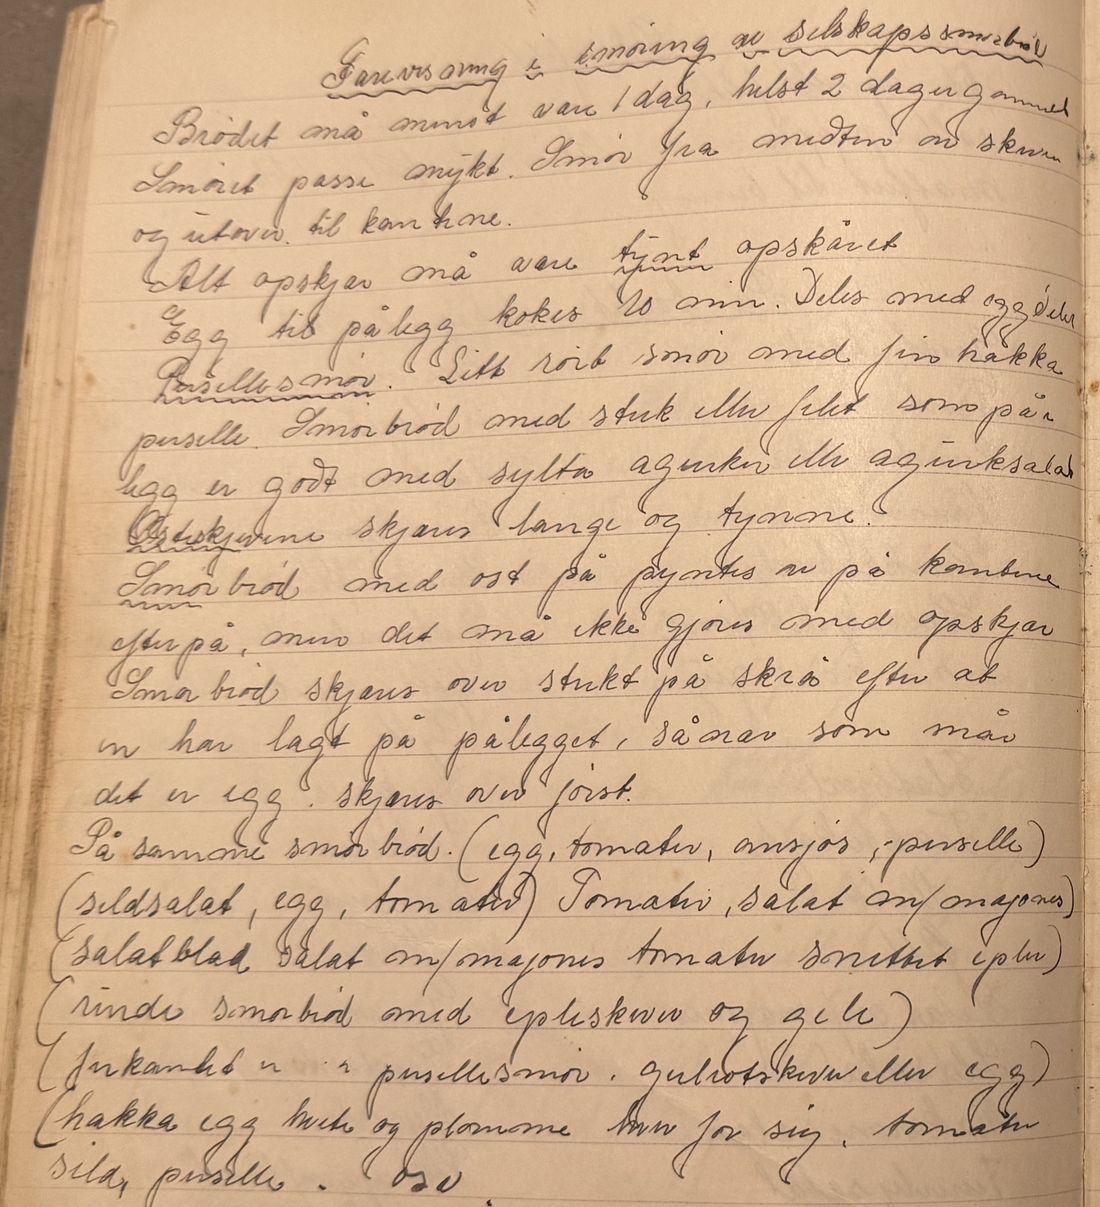 Farevisning i smöring av selskapssmörbröd
Brödet må minst vare 1 dag, helst 2 dager gammelt
Smöret passe mykt. Smör fra midten av skiven
og utover til kantene.
Alt opskjær må vare tynt opskåret
Egg til pålegg kokes 10 min. Deles med eggdeler
Persillesmör. Litt rört smör med fin håkka
persille. Smörbröd med stek eller filet som på-
legg er godt med sylta agurker eller agurksalat
Osteskjevene skjæres lange og tynne.
Smörbröd med ost på pyntes av på kantene
efterpå, men det må ikke gjöres med opskjær
Smörbröd skjæres over strekt på skrå efter at
en har lagt på pålegget, sånær som når
det er egg. skjæres over först.
På samme smörbröd. (egg, tomater, ansjos, persille)
(sildsalat, egg, tomater) Tomater, salat m/majones)
(salatblad salat m/majones tomater snittet epler)
(runde smörbröd med epleskiver og gele)
(firkantet " " persillesmör. gulrotskiver eller egg)
(hakka egg hvite og plomme hver for sig, tomater
sild, persille. osv.